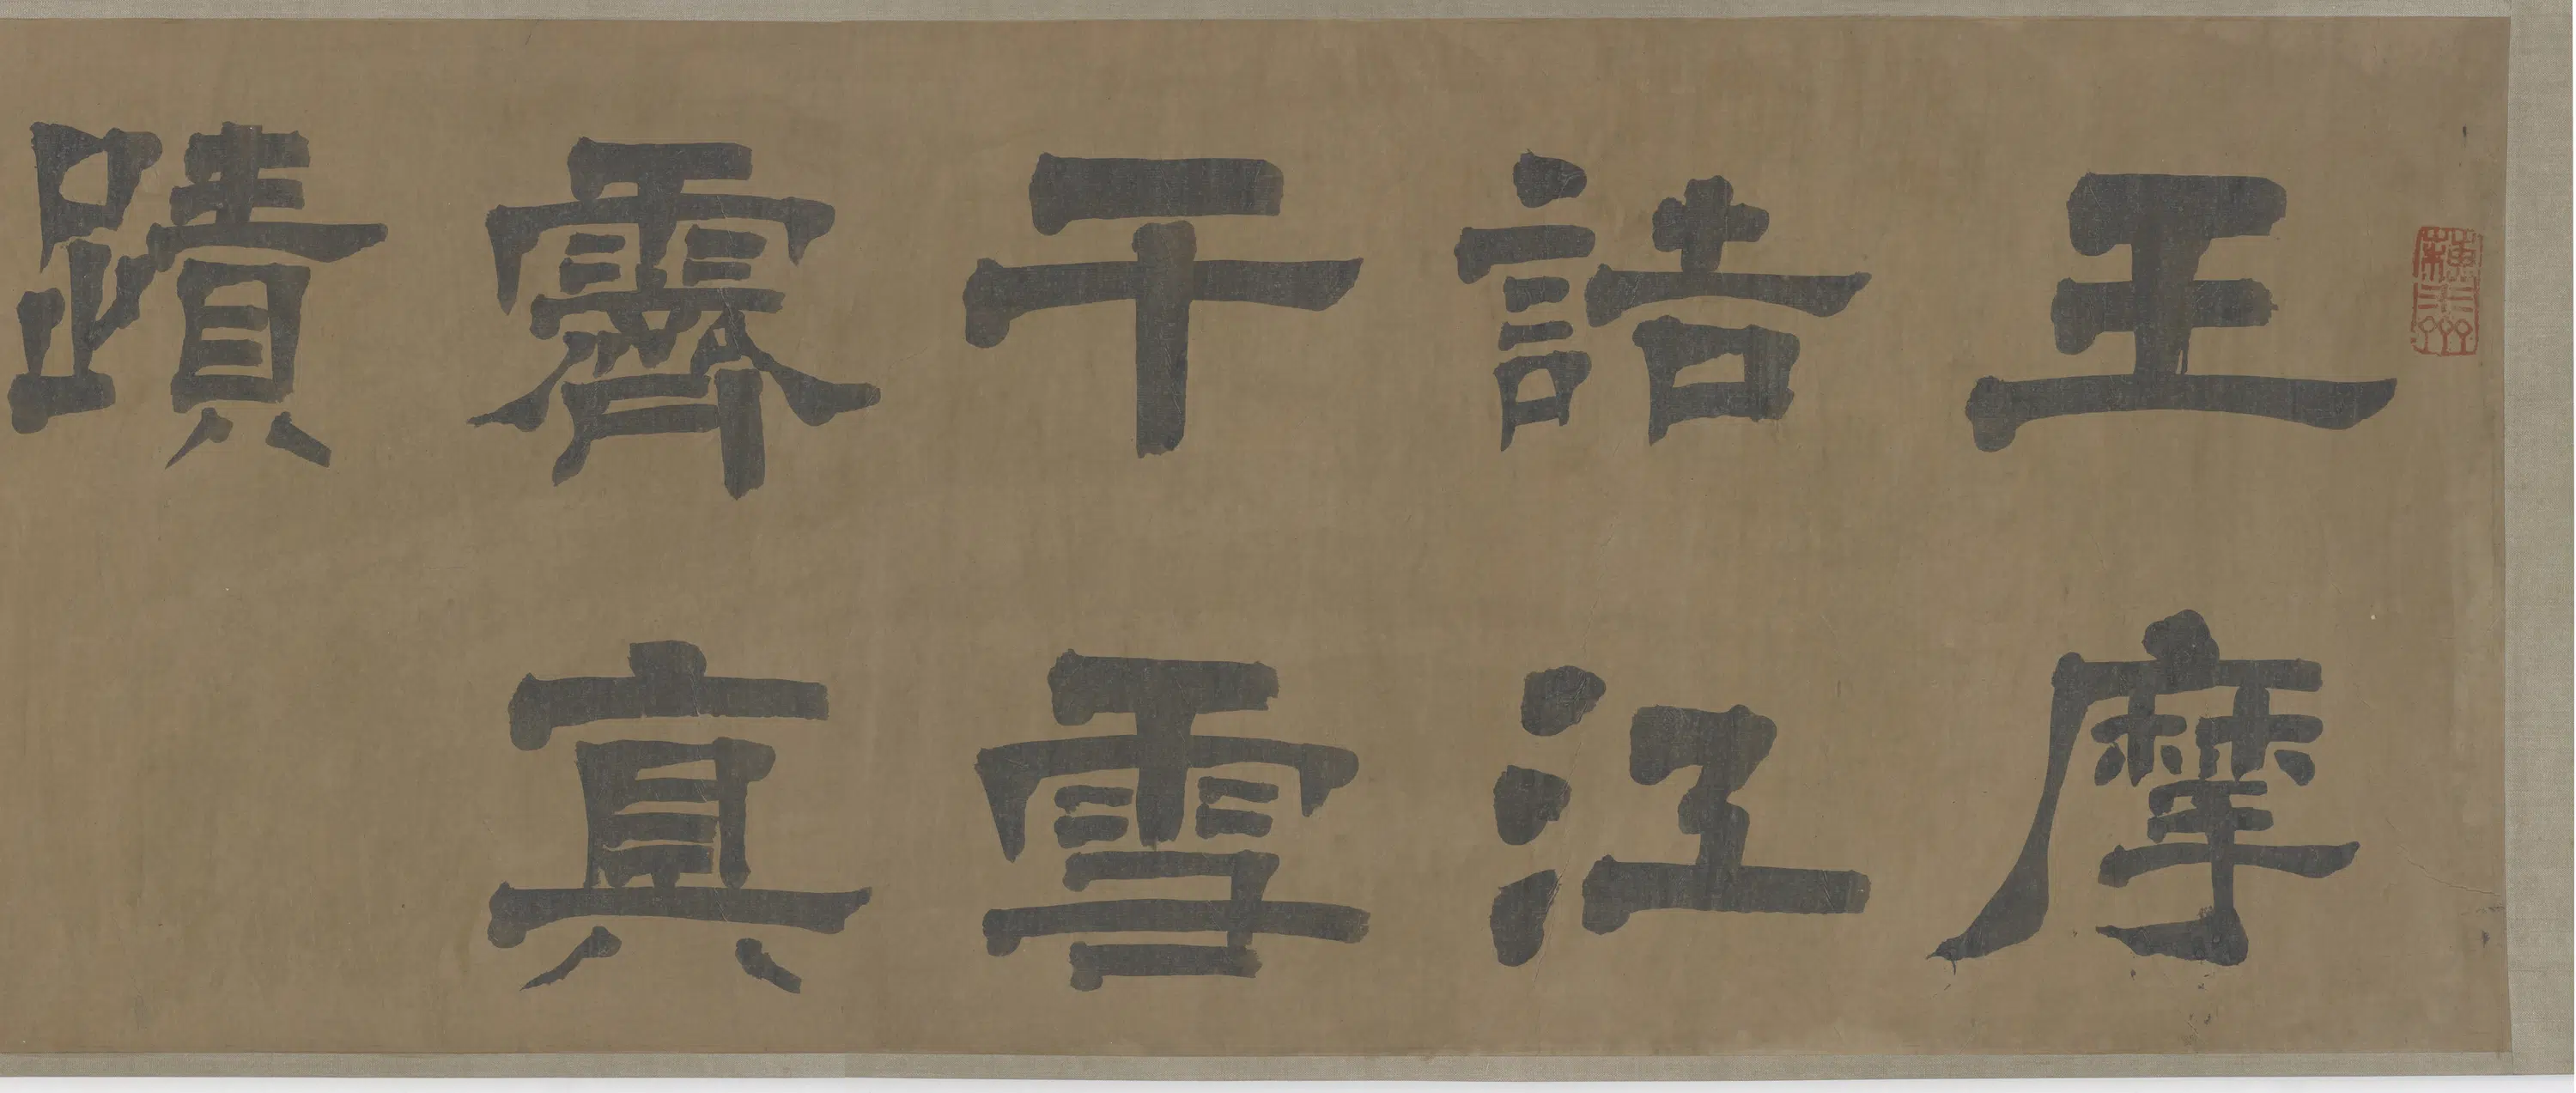 王摩
詰江
干雪
霽真
蹟